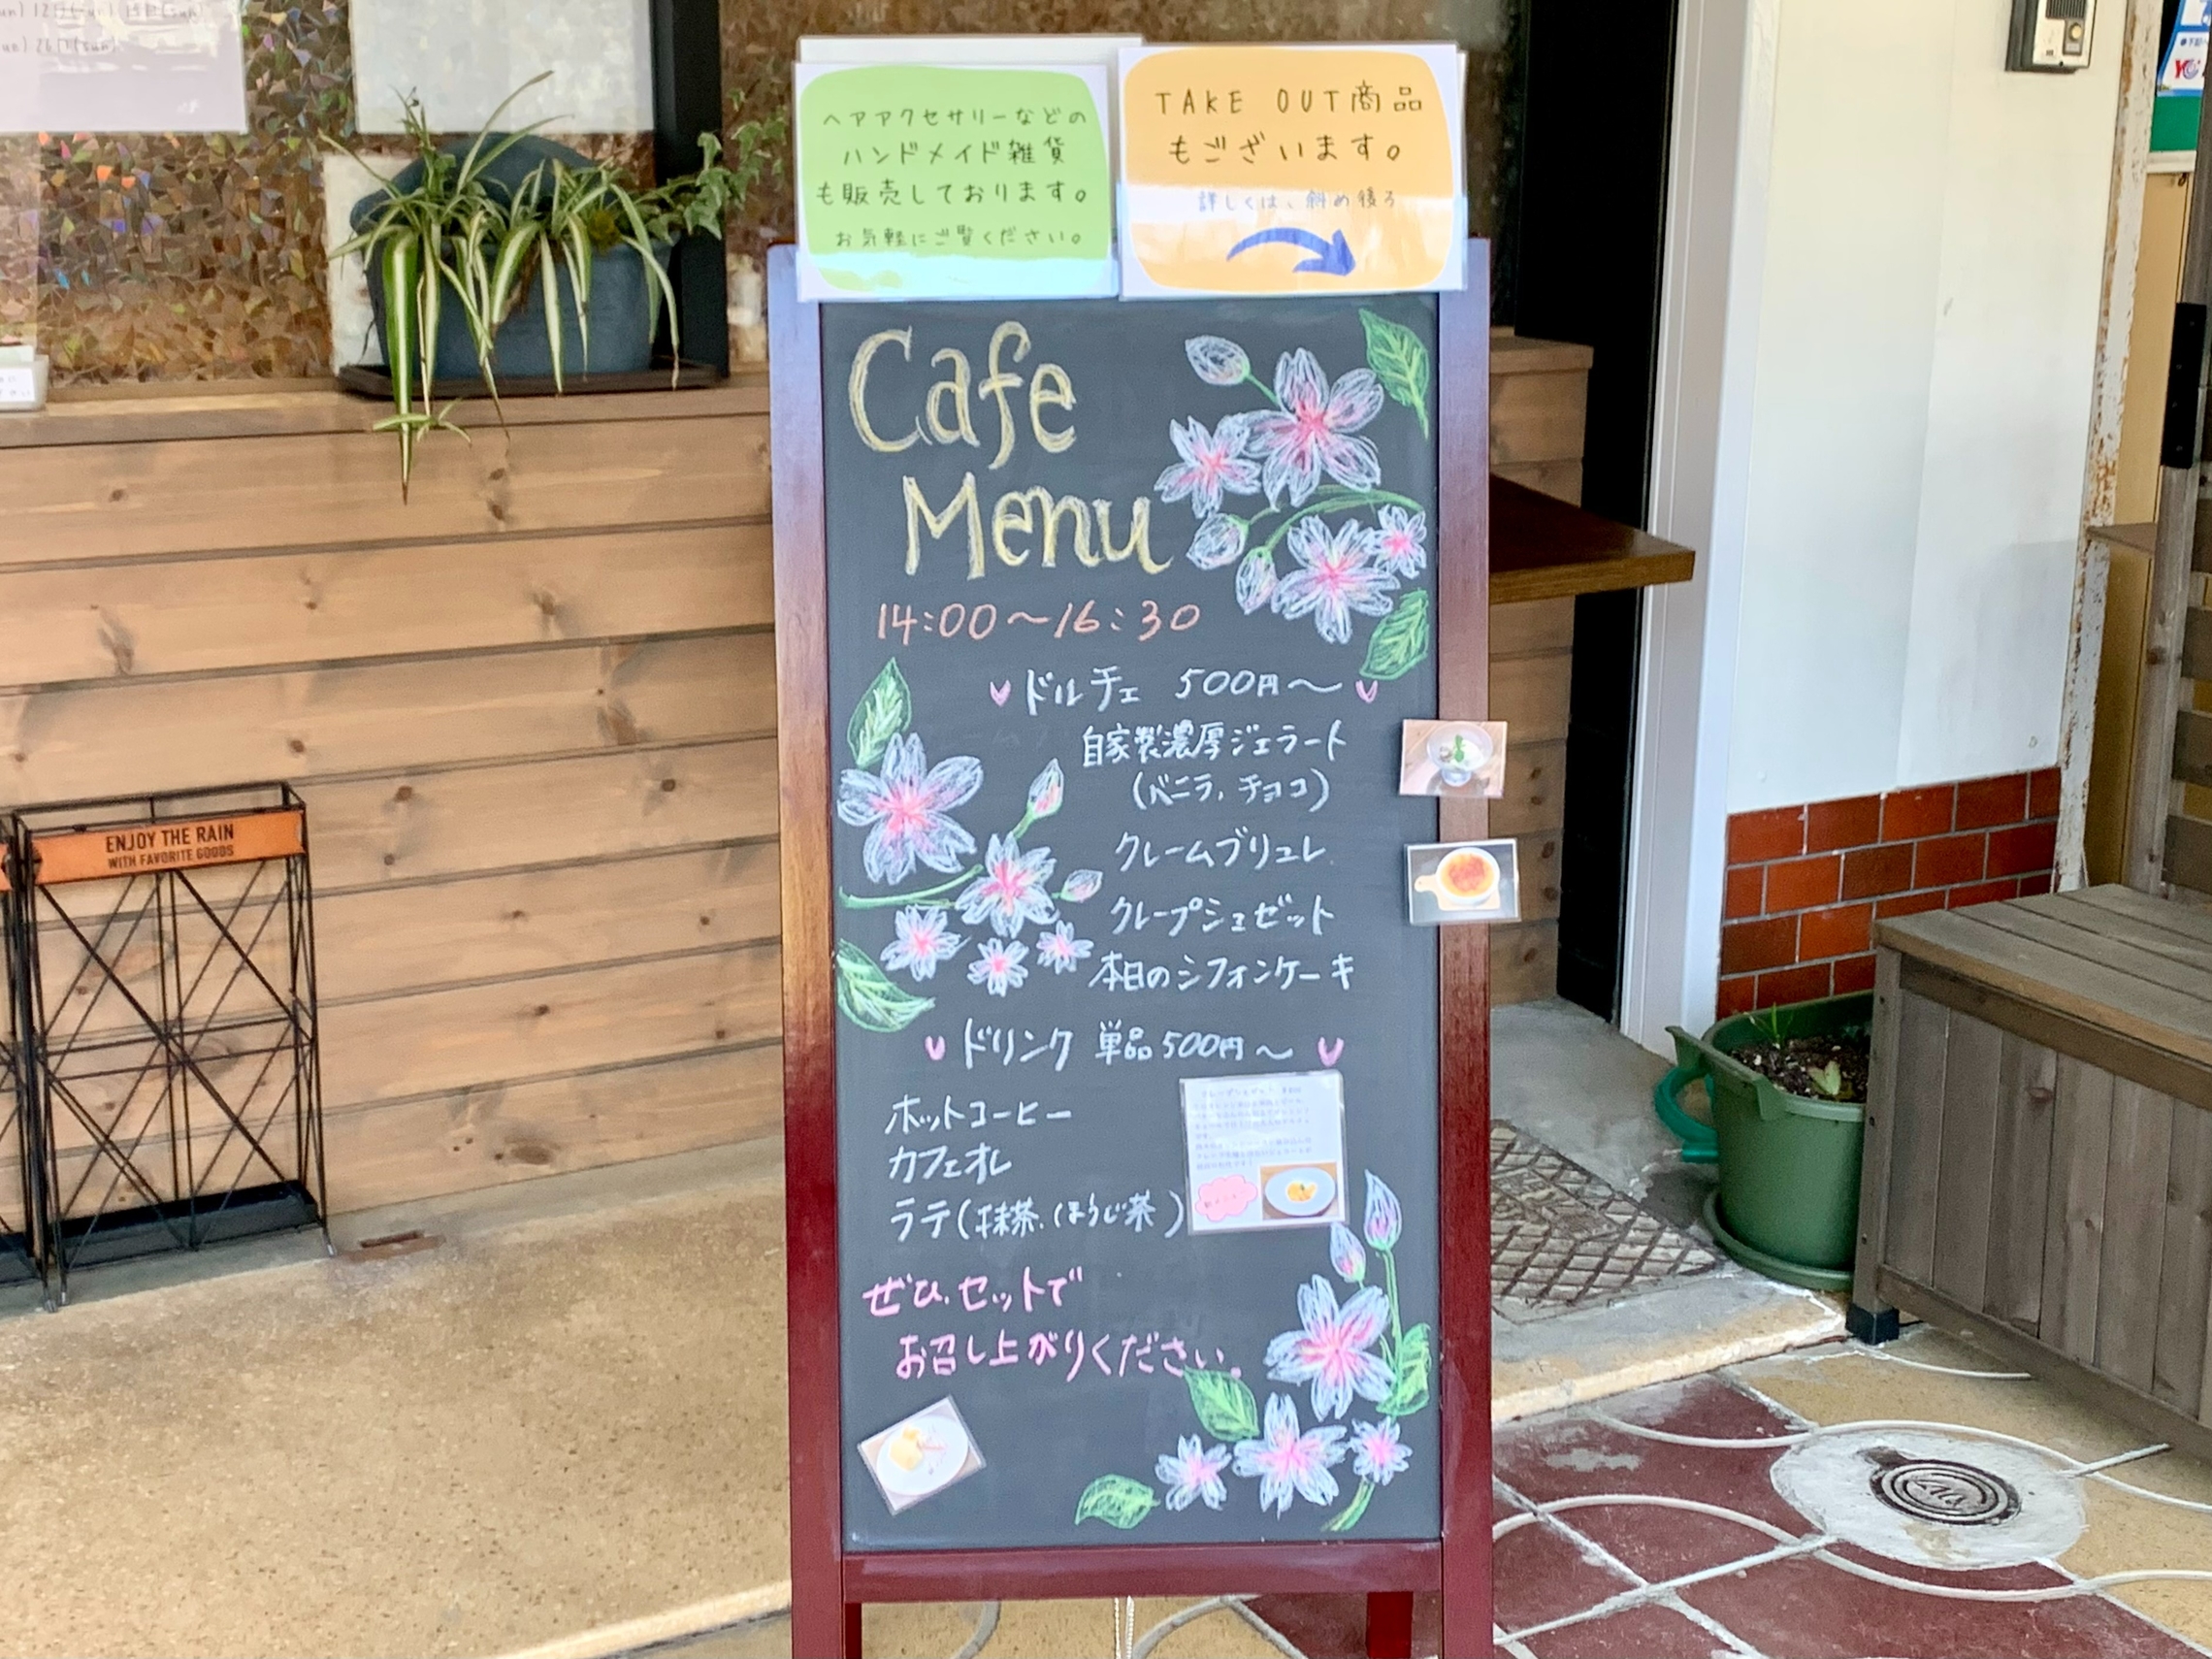 12日(sun) 15日(sun)
26日(sun)
ヘアアクセサリーなどの
ハンドメイド雑貨
も販売しております。
お気軽にご覧ください。
TAKE OUT商品
もございます。
詳しくは、斜め後ろ
Cafe
Menu
14:00〜16:30
ドルチェ 500円〜
自家製濃厚ジェラート
(バニラ、チョコ)
クレームブリュレ
クレープシュゼット
本日のシフォンケーキ
ドリンク 単品500円〜
ホットコーヒー
カフェオレ
ラテ(抹茶、ほうじ茶)
ぜひ、セットで
お召し上がりください。
ENJOY THE RAIN
WITH FAVORITE GOODS